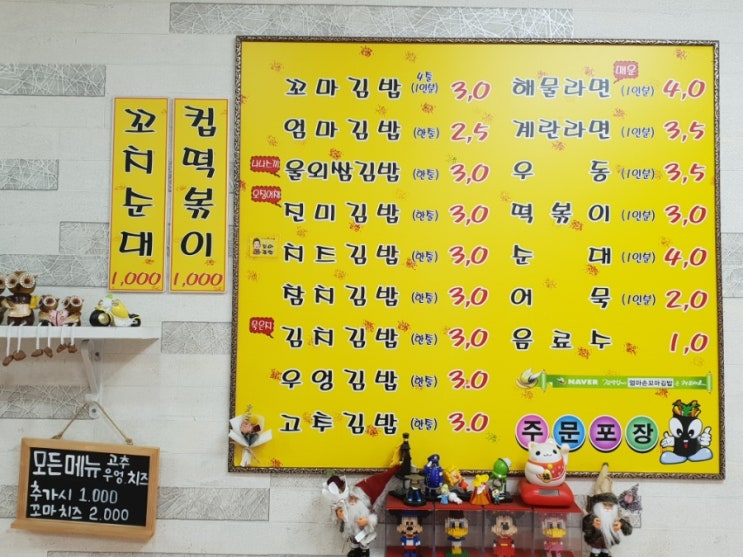 꼬치순대
1,000
컵떡볶이
1,000
꼬마김밥 4줄 (1인분) 3,0
엄마김밥 (한줄) 2,5
울외쌈김밥 (한줄) 3,0
진미김밥 (한줄) 3,0
치즈김밥 (한줄) 3,0
참치김밥 (한줄) 3,0
묵은지
김치김밥 (한줄) 3,0
우엉김밥 (한줄) 3.0
고추김밥 (한줄) 3.0
매운
해물라면 (1인분) 4,0
계란라면 (1인분) 3,5
우동 (1인분) 3,5
떡볶이 (1인분) 3,0
순대 (1인분) 4,0
어묵 (1인분) 2,0
음료수 1,0
NAVER 엄마손꼬마김밥
주문포장
모든메뉴 고추 우엉 치즈
추가시 1.000
꼬마치즈 2.000